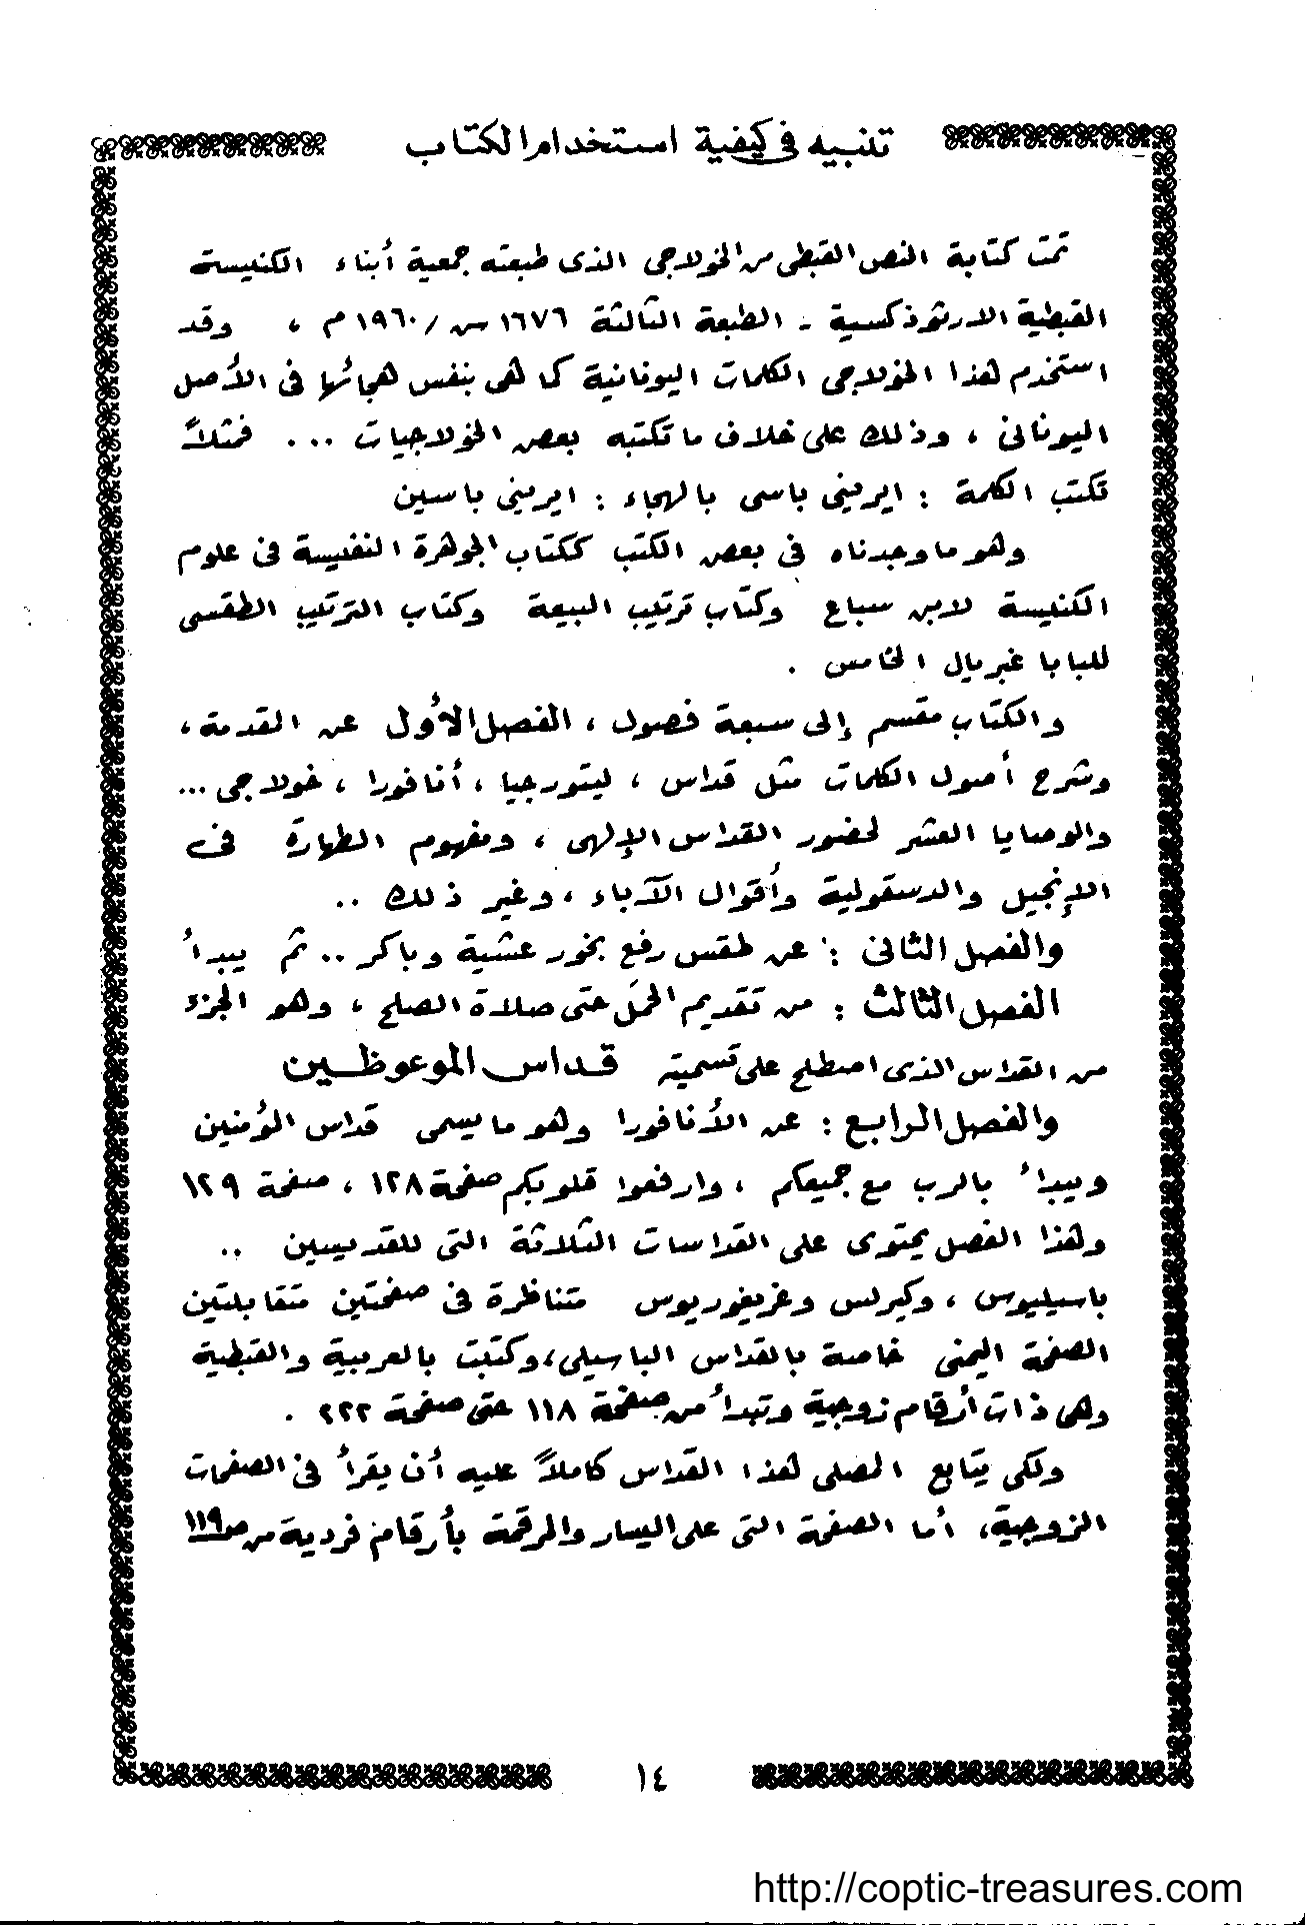 تنبيه فى كيفية استخدام الكتاب
تمت كتابة النص القبطى من الخولاجى الذى طبعته جمعية أبناء الكنيسة
القبطية الارثوذكسية - الطبعة الثالثة ١٦٧٦ س / ١٩٦٠ م ، وقد
استخدم هذا الخولاجى الكلمات اليونانية كما هى بنفس هجائها فى الأصل
اليونانى ، وذلك على خلاف ما تكتبه بعض الخولاجيات ... فمثلاً
تكتب الكلمة : ايرينى باسى بالهجاء : ايرينى باسين
وهو ما وجدناه فى بعض الكتب ككتاب الجوهرة النفيسة فى علوم
الكنيسة لابن سباع وكتاب ترتيب البيعة وكتاب الترتيب الطقسى
للبابا غبريال الخامس .
والكتاب مقسم إلى سبعة فصول ، الفصل الأول عن القدمة ،
وشرح أصول الكلمات مثل قداس ، ليتورجيا ، أنافورا ، خولاجى ...
والوصايا العشر لحضور القداس الإلهى ، ومفهوم الطهارة فى
الإنجيل والدسقولية وأقوال الآباء ، وغير ذلك ..
والفصل الثانى : عن طقس رفع بخور عشية وباكر .. ثم يبدأ
الفصل الثالث : من تقديم الحمَل حتى صلاة الصلح ، وهو الجزء
من القداس الذى اصطلح على تسميته قداس الموعوظين
والفصل الرابع : عن الأنافورا وهو ما يسمى قداس المؤمنين
ويبدأ بالرب مع جميعكم ، وارفعوا قلوبكم صفحة ١٢٨ ، صفحة ١٢٩
وهذا الفصل يحتوى على القداسات الثلاثة التى للقديسين ..
باسيليوس ، وكيرلس وغريغوريوس متناظرة فى صفحتين متقابلتين
الصفحة اليمنى خاصة بالقداس الباسيلى، وكتبت بالعربية والقبطية
وهى ذات أرقام زوجية وتبدأ من صفحة ١١٨ حتى صفحة ٢٢٢ .
ولكى يتابع المصلى هذا القداس كاملاً عليه أن يقرأ فى الصفحات
الزوجية، أما الصفحة التى على اليسار والمرقمة بأرقام فردية من ص ١١٩
١٤
http://coptic-treasures.com